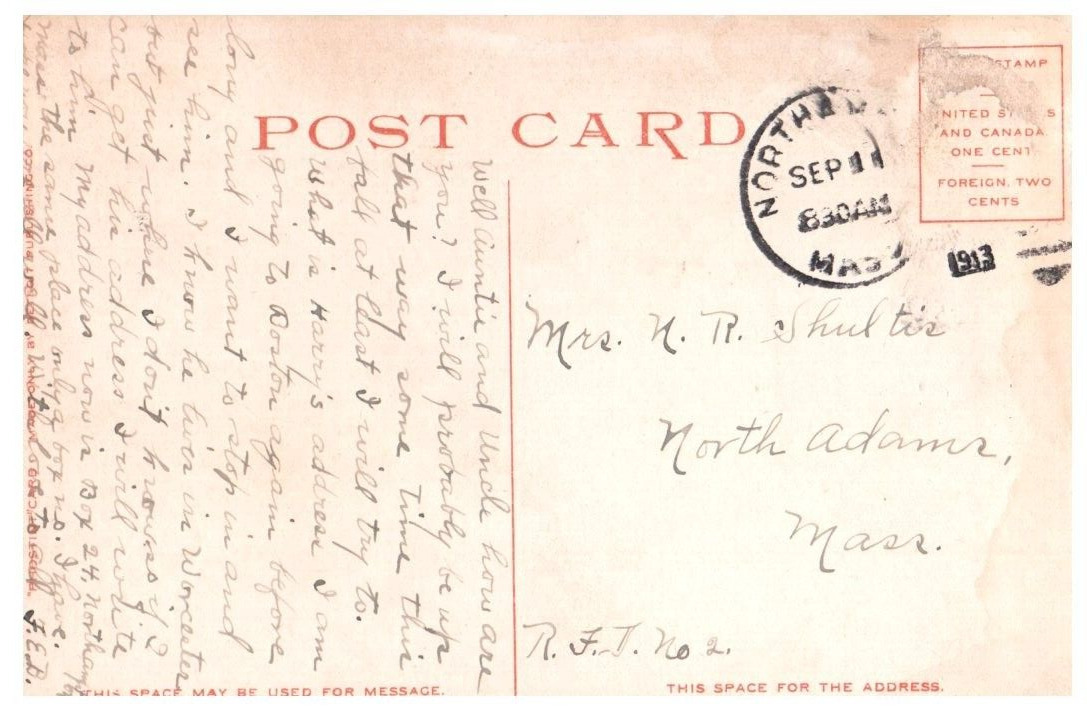 POST CARD
NORTH
SEP 11
830 AM
MASS
1913
STAMP
UNITED STATES
AND CANADA,
ONE CENT
FOREIGN, TWO
CENTS
Well Auntie and Uncle how are
you? I will probably be up
that way some time this
fall at least I will try to.
What is Harry's address I am
going to Boston again before
long and I want to stop in and
see him. I know he lives in Worcester
but just where I don't know so if I
can get his address I will write
to him. My address now is Box 24, Northamp
the same place only a box no. I have.
With love to all
F.E.D.
Mrs. N. R. Shultis
North Adams,
Mass.
R.F.D. No 2.
THIS SPACE MAY BE USED FOR MESSAGE.
THIS SPACE FOR THE ADDRESS.